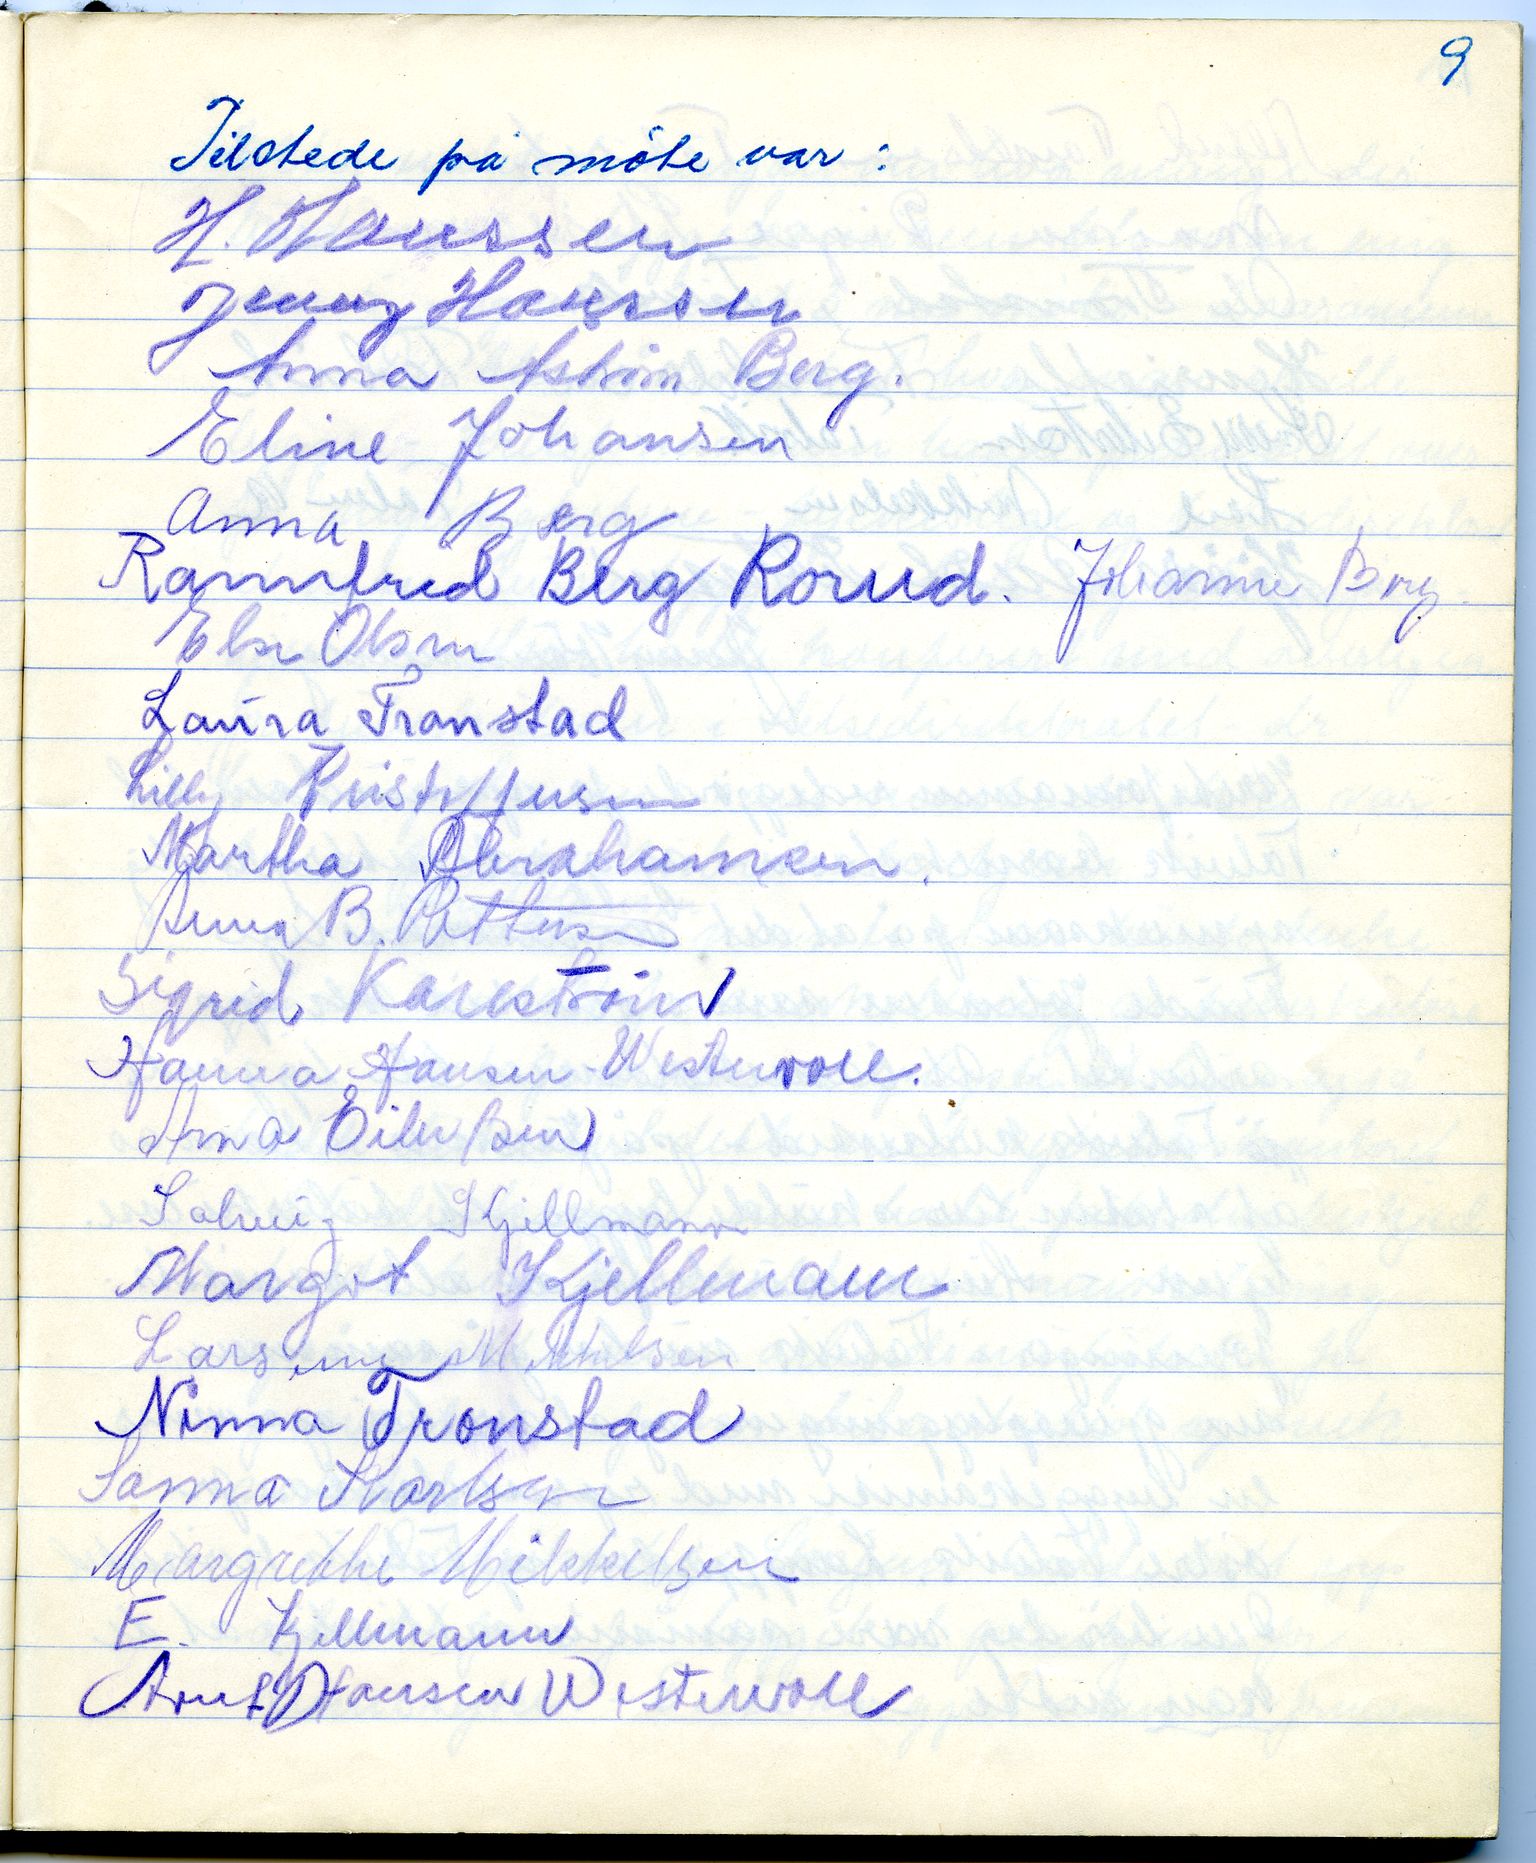 9
Tilstede på möte var:
H. Hanssen
Jenny Hanssen
Anna Aström Berg.
Eline Johansen
Anna Berg
Rannfrid Berg Rorud. Johanne Berg
Else Olsen
Laura Tronstad
Lilly Kristoffersen
Martha Abrahamsen.
Anna B. Pettersen
Sigrid Karlström
Hanna Hansen-Westervoll.
Anna Eilertsen
Solveig Kjellmann
Margot Kjellmann
Larsine Mikkelsen
Ninna Tronstad
Sanna Karlsen
Margrethe Mikkelsen
E. Kjellmann
Arnt Hansen Westervoll